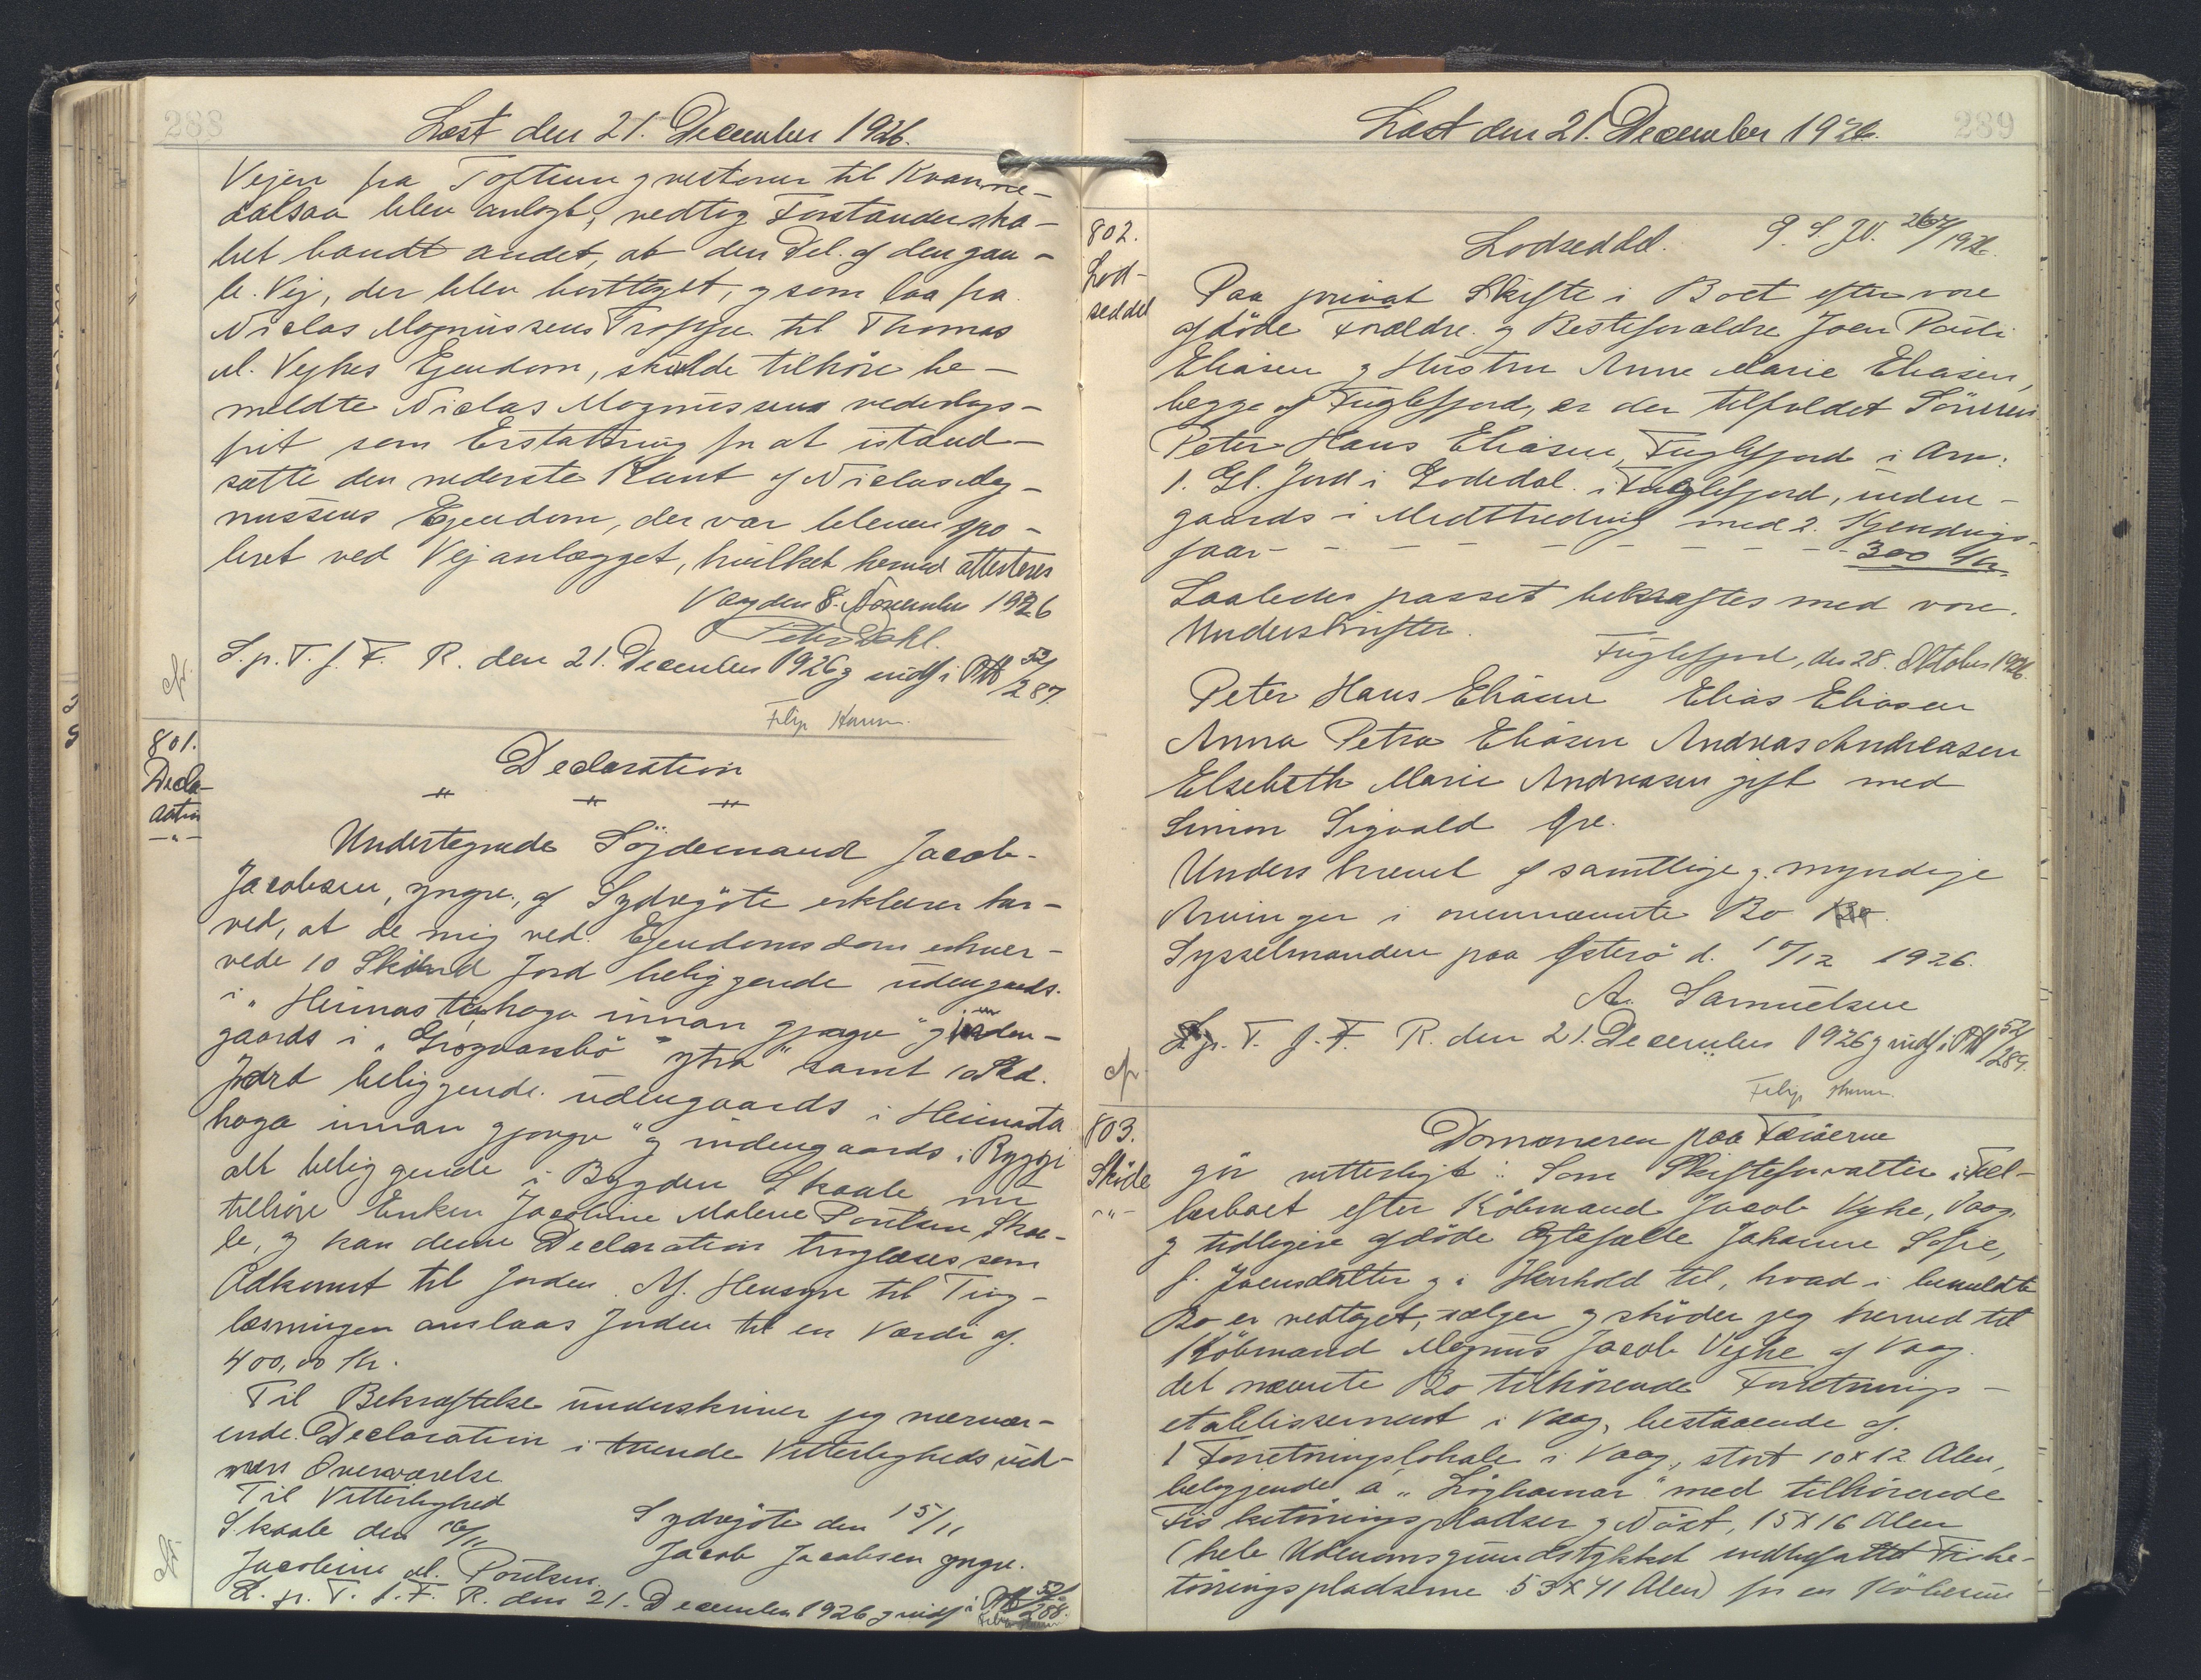 288
Læst den 21. December 1926.
Vejen fra Toftun g vestover til Kvanne-
dalsaa blev anlagt, vedtog Forstanderska-
bet bandt andet, at den Del af den gam-
le Vej, der blev borttaget, og som laa fra
Niclas Magnussens Trappe til Thomas
M. Veyhes Ejendom, skulde tilhöre be-
meldte Niclas Magnussens vederlags-
frit som Erstatning for at istand-
sætte den nederste Kant af Niclas Mag-
nussens Ejendom, der var bleven spo-
leret ved Vejanlægget, hvilket herved attesteres
Vaag den 8. November 1926
Peter Dahl.
L. p. T. f. F. R. den 21. December 1926 g indf i Ptb 52/287.
Filip Hamm.
cfr.
801.
Decla-
ation
-"-
Declaration
Undertegnede Söjdemand Jacob
Jacobsen, yngre, af Sydregöte erklærer her-
ved, at de mig ved Ejendomsdom erhver-
vede 10 Skind Jord beliggende udengaards
i "Heimastahaga innan gjogv" g inden-
gaards i "Grognarsbö ytra" samt 10 Skd.
Jord beliggende udengaards i Heimasta
haga innan gjogv" g indengaards i Ryggi
alt beliggende i Bygden Skaale nu
tilhöre Enken Jacobine Malene Poulsen Skaa-
le, g kan denne Declaration tinglæses som
Adkomst til Jorden. Af Hensyn til Ting-
læsningen anslaas Jorden til en Værdi af
400,00 Kr.
Til Bekræftelse underskriver jeg nærvær-
ende Declaration i tvende Vitterlighedsvid-
ners Overværelse
Til Vitterlighed
Skaale den 16/11
Sydregöte den 15/11
Jacob Jacobsen yngre.
Jacobine M. Poulsen.
L. p. T. f. F. R. den 21. December 1926 g indf i Ptb 52/288.
Filip Hamm
cfr.
289
Læst den 21. December 1926.
802.
Lod-
seddel
Lodseddel.
Paa privat Skifte i Boet efter vore
afdöde Forældre g Bedsteforældre Joen Pauli
Eliasen g Hustru Anne Marie Eliasen,
begge af Fuglefjord, er der tilfaldet Sönnen
Peter Hans Eliasen, Fuglefjord i Arv:
1. Gl. Jord i Godedal i Fuglefjord, inden-
gaards i Midttreding med 2. Kjendings-
faar - - - - - - - - - 300 Kr.
Saaledes passet bekræftes med vore
Underskrifter.
Fuglefjord, den 28. Oktober 1926.
Peter Hans Eliasen Elias Eliasen
Anna Petra Eliasen Andreas Andreasen
Elsebeth Marie Andreasen gift med
Simon Sigvald Gre.
Underskrevet af samtlige g. myndige
Arvinger i ovennævnte Bo
Sysselmanden paa Österö d. 10/12 1926.
A. Samuelsen
L. p. T. f. F. R. den 21. December 1926 g indf i Ptb 52/289.
Filip Hamm.
cfr
803.
Sköde
-"-
Dommeren paa Færöerne
gör vitterligt: Som Skifteforvalter i Fæl-
lesboet efter Köbmand Jacob Vyhe, Vaag,
g tidligere afdöde Ægtefælle Johanne Sofie,
f. Joensdatter g i Henhold til, hvad i bemeldte
Bo er vedtaget, sælger g sköder jeg herved til
Köbmand Magnus Jacob Vejhe af Vaag
det nævnte Bo tilhörende Forretnings-
etablissement i Vaag, bestaaende af
1 Forretningslokale i Vaag, stort 10 x 12 Alen,
beliggende á "Löghamar" med tilhörende
Fisketörringspladser g Nöst, 15 x 16 Alen
(hele Udenomsgrundstykket indbefattet Fiske-
törringspladserne 53 x 41 Alen) for en Köbesum